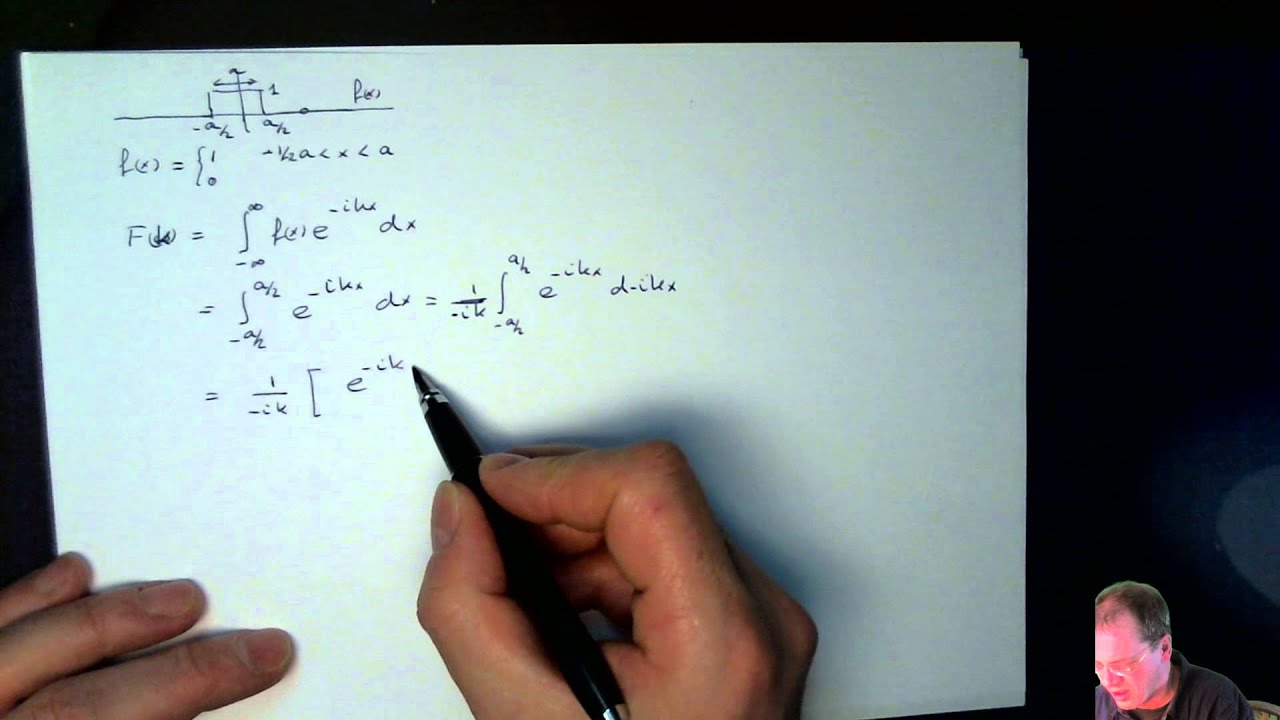 a
1 f(x)
-a/2 a/2
f(x) = { 1 -1/2a < x < a
0
F(k) = ∫_{-∞}^{∞} f(x) e^{-ikx} dx
= ∫_{-a/2}^{a/2} e^{-ikx} dx = 1/-ik ∫_{-a/2}^{a/2} e^{-ikx} d-ikx
= 1/-ik [ e^{-ik